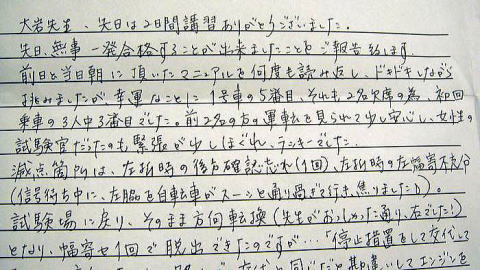 大岩先生、先日は2日間講習ありがとうございました。
先日、無事一発合格することが出来ましたことをご報告致します。
前日と当日朝に頂いたマニュアルを何度も読み返し、ドキドキしながら
挑みましたが、幸運なことに1号車の5番目、それも2名欠席の為、初回
乗車の3人中3番目でした。前2名の方の運転を見られて少し安心し、女性の
試験官だったのも緊張が少しほぐれ、ラッキーでした。
減点箇所は、左折時の後方確認忘れ(1回)、左折時の左幅寄せ不十分
(信号待ち中に、左脇を自転車がスーンと通り過ぎて行き、焦りました)。
試験場に戻り、そのまま方向転換(先生がおっしゃった通り、右でした!)
となり、幅寄せ1回で脱出できたのですが…「停止措置をして交代して
交代と同じだと勘違いしてエンジンを